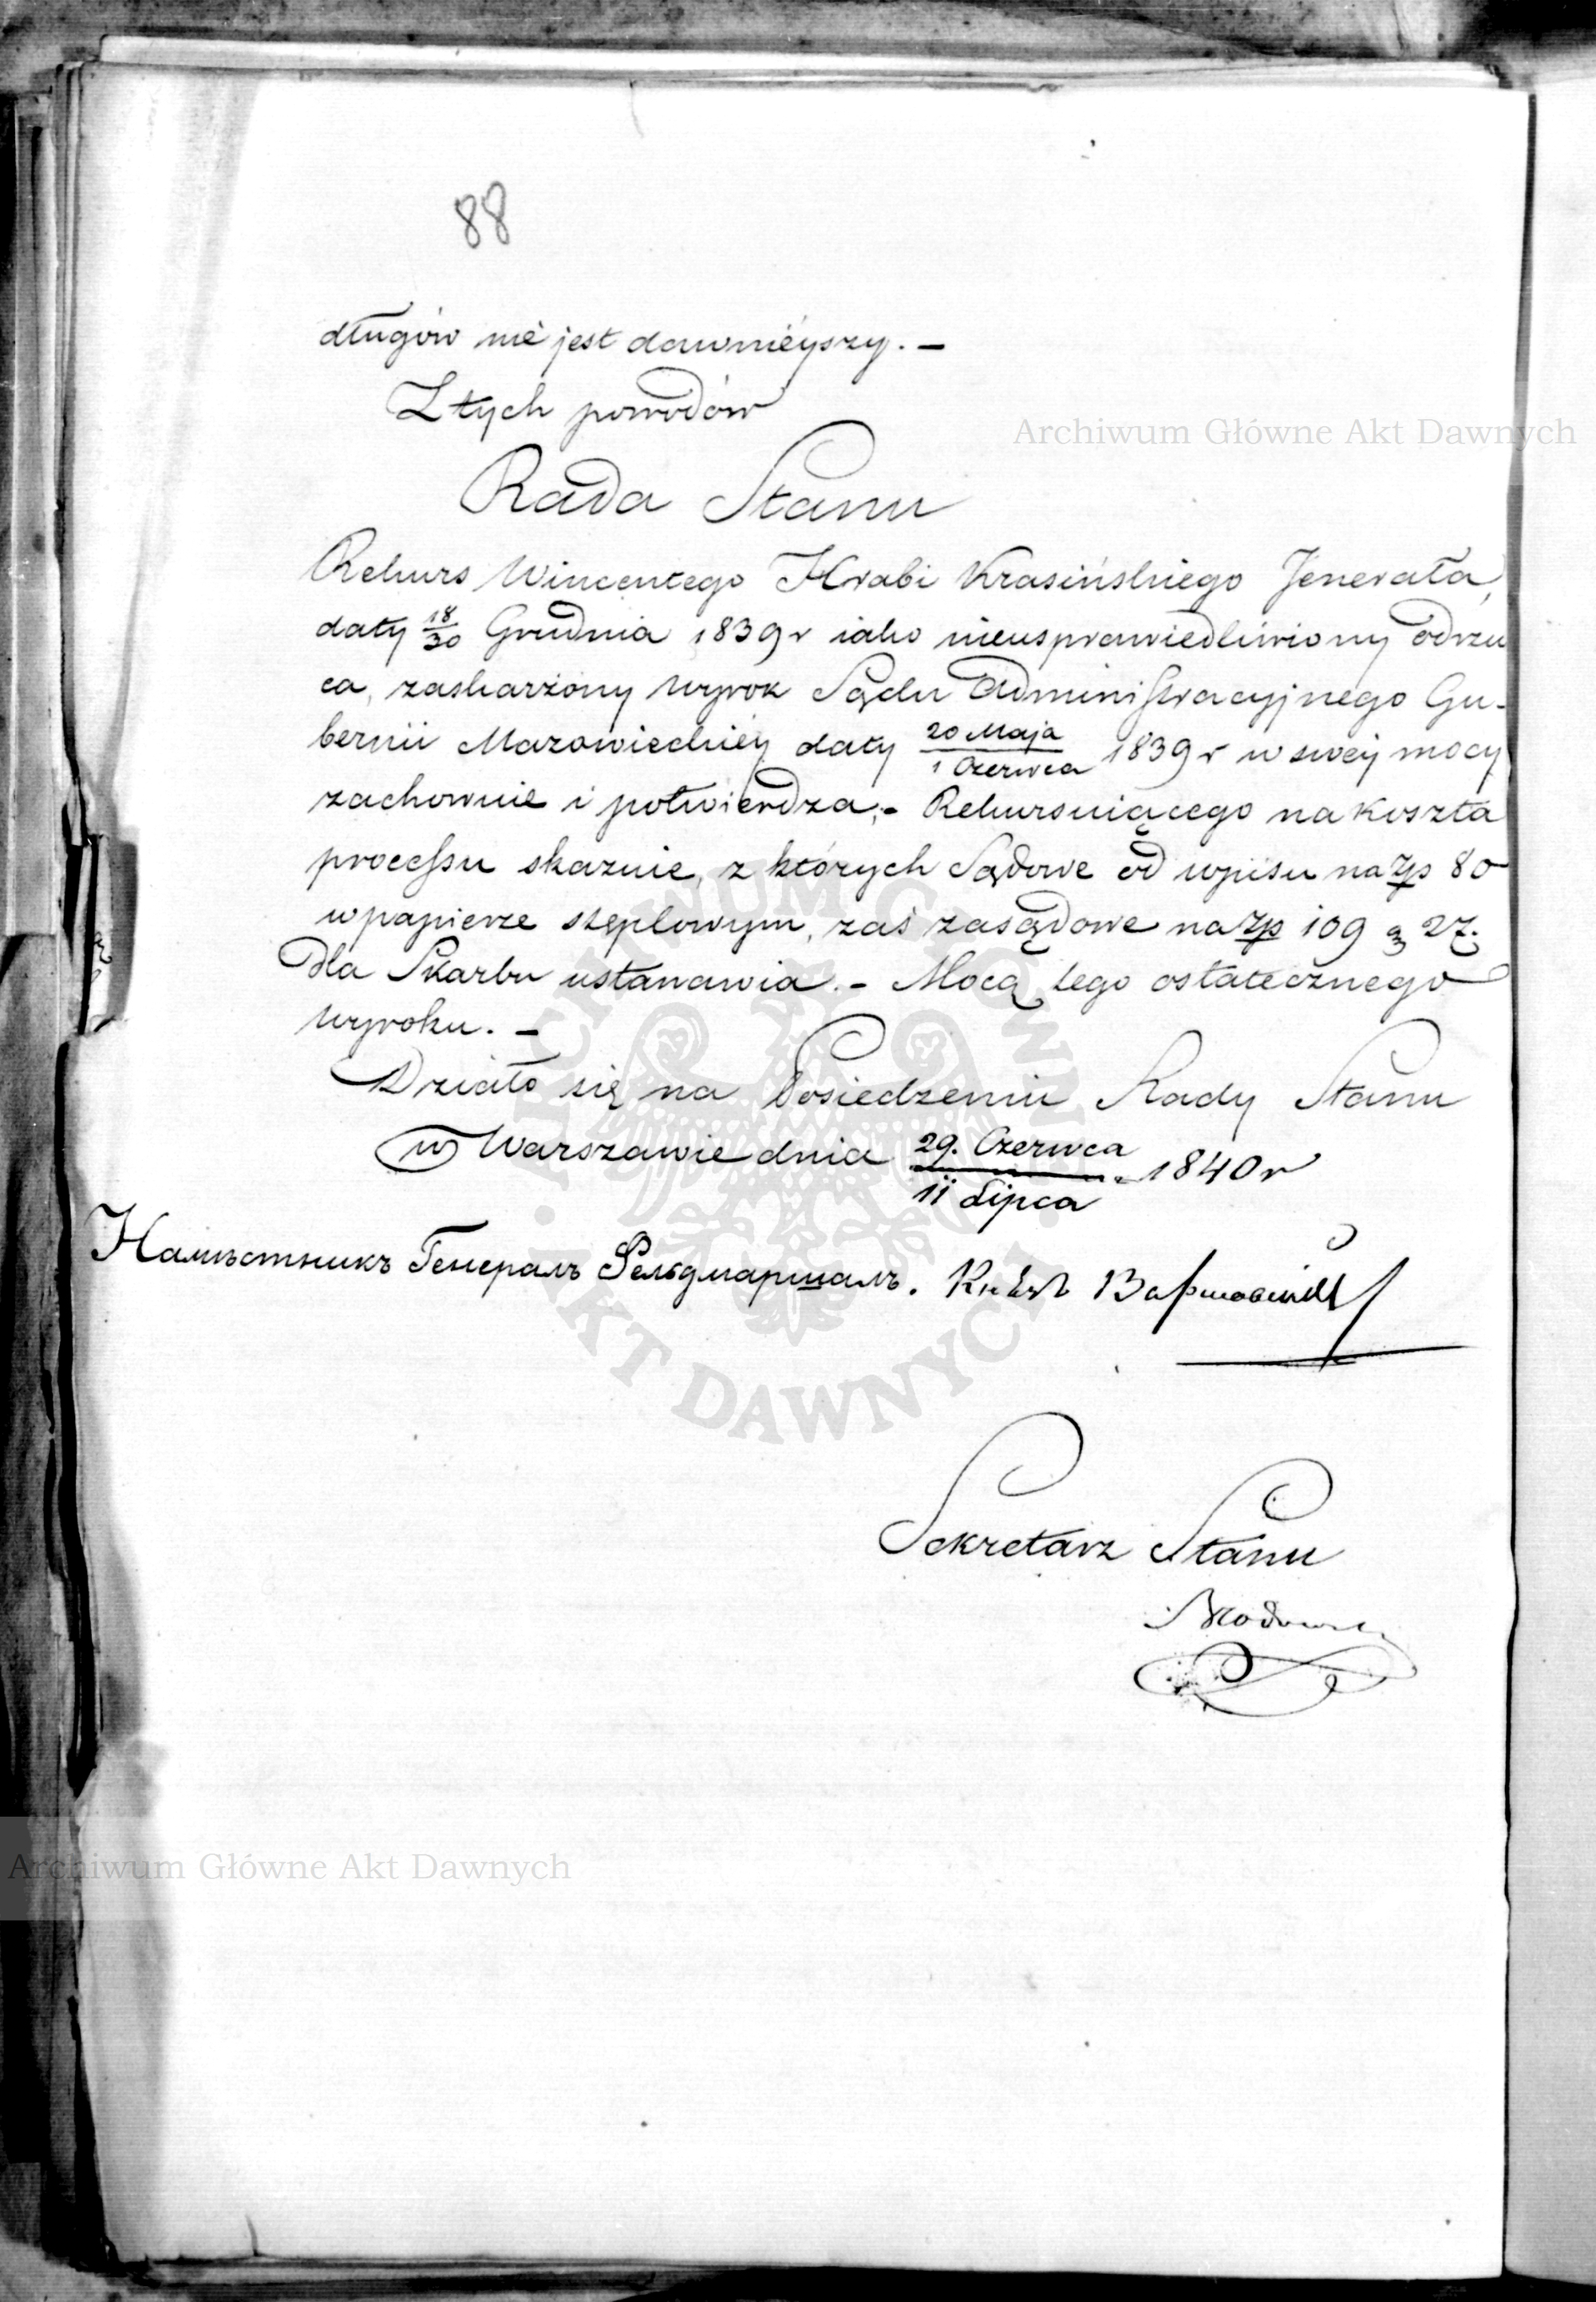 88
długów nie jest dawnieyszy. –
Z tych powodów
Rada Stanu
Rekurs Wincentego Hrabi Krasińskiego Jenerała,
daty 18/30 Grudnia 1839 r iako nieusprawiedliwiony odrzu
ca, zaskarżony wyrok Sądu Administracyjnego Gu-
bernii Mazowieckiéy daty 20 Maja/1 Czerwca 1839 r w swéy mocy
zachowuie i potwierdza; – Rekursuiącego na koszta
processu skazuie, z których Sądowe od wpisu na Zp 80
w papierze stęplowym, zaś zasądowe na Zp 109 g 27.
dla Skarbu ustanawia. – Mocą tego ostatecznego
wyroku. –
Działo się na Posiedzeniu Rady Stanu
w Warszawie dnia 29. Czerwca/11 Lipca 1840 r
Намѣстникъ Генералъ Фельдмаршалъ. Князь Варшавскій
Sekretarz Stanu
Archiwum Główne Akt Dawnych
ARCHIWUM GŁÓWNE AKT DAWNYCH
Archiwum Główne Akt Dawnych